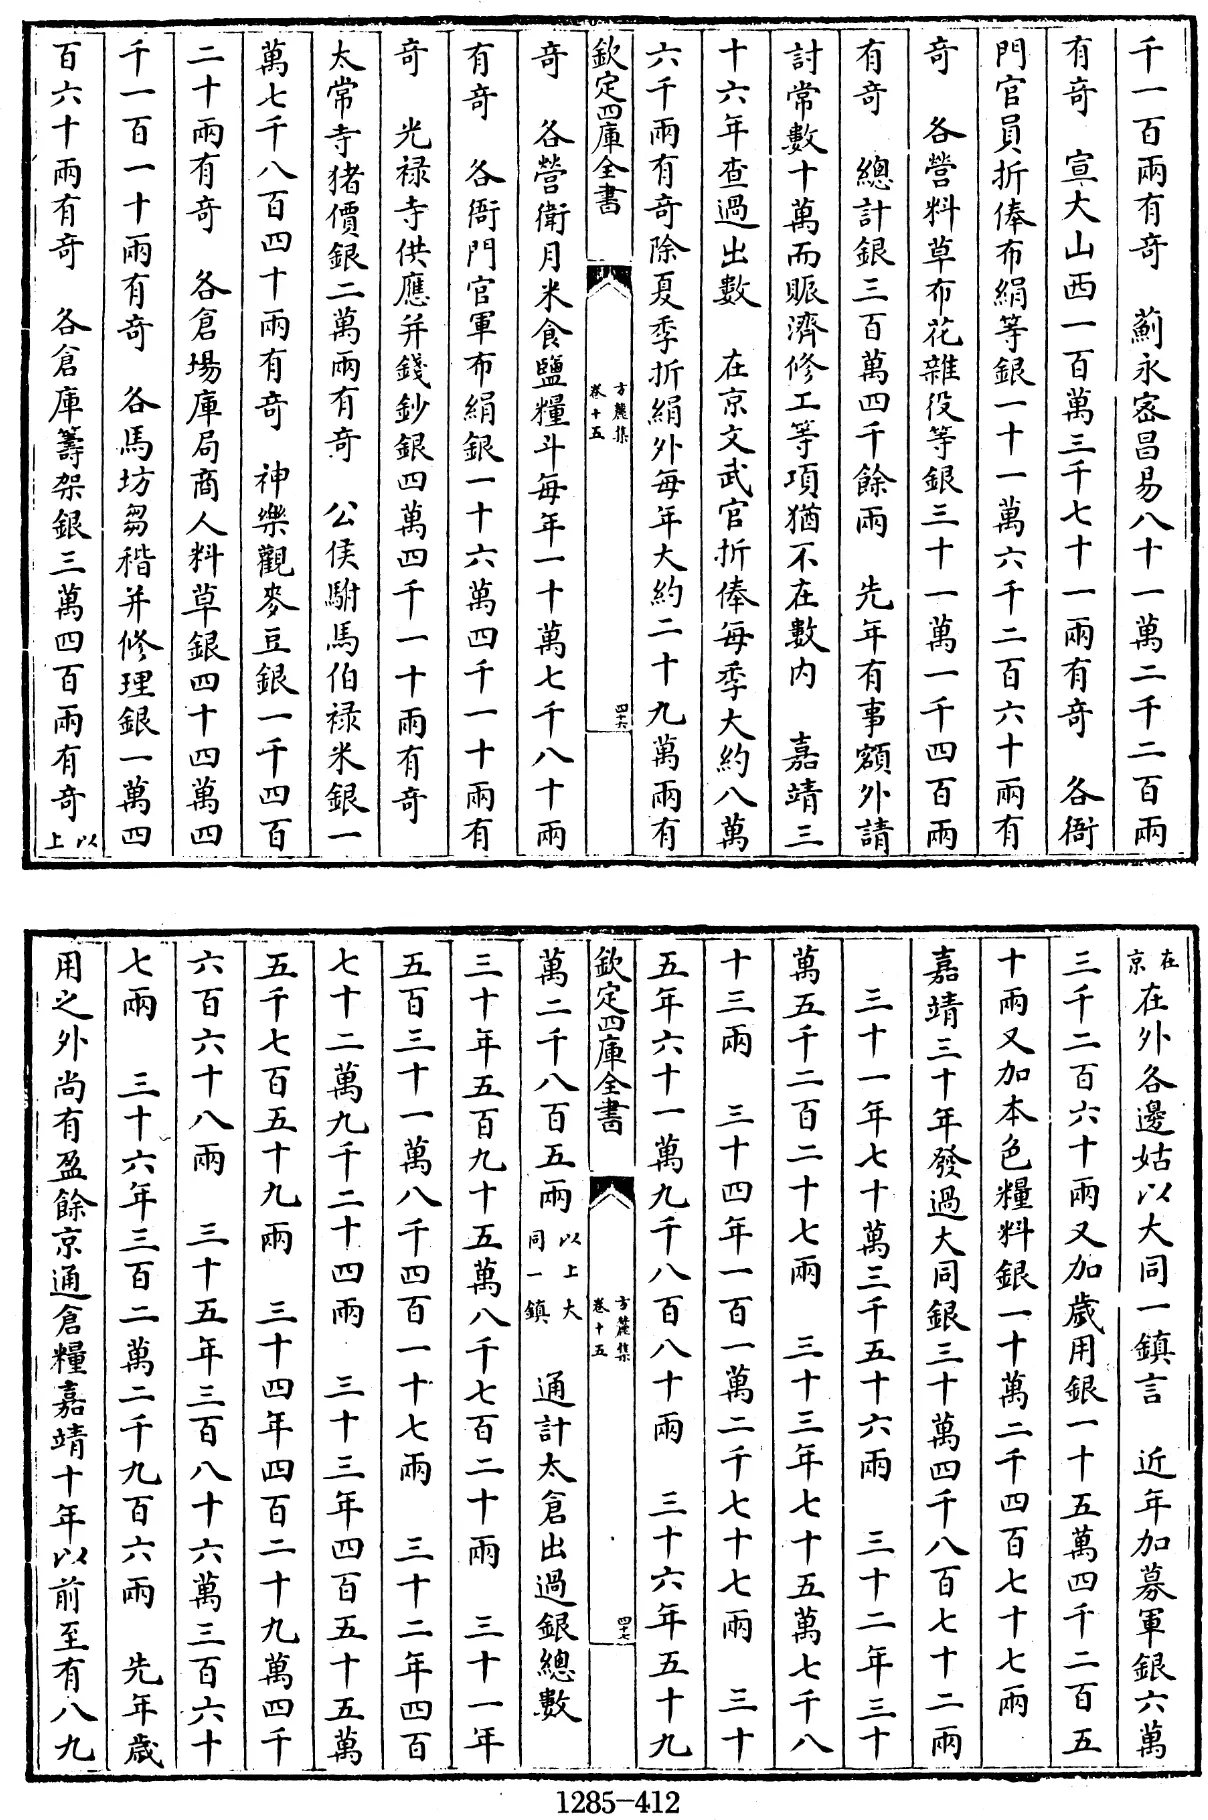 千一百兩有奇　薊永密昌易八十一萬二千二百兩
有奇　宣大山西一百萬三千七十一兩有奇　各衙
門官員折俸布絹等銀一十一萬六千二百六十兩有
奇　各營料草布花雜役等銀三十一萬一千四百兩
有奇　總計銀三百萬四千餘兩　先年有事額外請
討常數十萬而賑濟修工等項猶不在數內　嘉靖三
十六年查過出數　在京文武官折俸每季大約八萬
六千兩有奇除夏季折絹外每年大約二十九萬兩有
欽定四庫全書
方麓集
卷十五
四十六
奇　各營衛月米食鹽糧斗每年一十萬七千八十兩
有奇　各衙門官軍布絹銀一十六萬四千一十兩有
奇　光祿寺供應并錢鈔銀四萬四千一十兩有奇
太常寺猪價銀二萬兩有奇　公侯駙馬伯祿米銀一
萬七千八百四十兩有奇　神樂觀麥豆銀一千四百
二十兩有奇　各倉場庫局商人料草銀四十四萬四
千一百一十兩有奇　各馬坊芻稭并修理銀一萬四
百六十兩有奇　各倉庫籌架銀三萬四百兩有奇以上
在京在外各邊姑以大同一鎮言　近年加募軍銀六萬
三千二百六十兩又加歲用銀一十五萬四千二百五
十兩又加本色糧料銀一十萬二千四百七十七兩
嘉靖三十年發過大同銀三十萬四千八百七十二兩
三十一年七十萬三千五十六兩　三十二年三十
萬五千二百二十七兩　三十三年七十五萬七千八
十三兩　三十四年一百一萬二千七十七兩　三十
五年六十一萬九千八百八十兩　三十六年五十九
欽定四庫全書
方麓集
卷十五
四十七
萬二千八百五兩以上大同一鎮　通計太倉出過銀總數
三十年五百九十五萬八千七百二十兩　三十一年
五百三十一萬八千四百一十七兩　三十二年四百
七十二萬九千二十四兩　三十三年四百五十五萬
五千七百五十九兩　三十四年四百二十九萬四千
六百六十八兩　三十五年三百八十六萬三百六十
七兩　三十六年三百二萬二千九百六兩　先年歲
用之外尚有盈餘京通倉糧嘉靖十年以前至有八九
1285-412